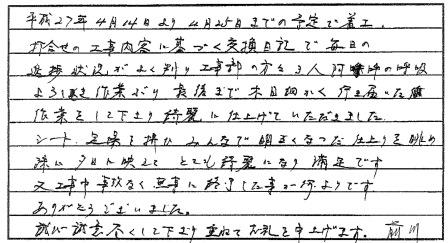 平成27年4月14日より4月25日までの予定で着工、
打合せの工事内容に基づく交換日記で毎日の
進捗状況がよく判り工事部の方々3人阿吽の呼吸
よろしき作業ぶり 最後まで木目細かく行き届いた
作業をして下さり綺麗に仕上げていただきました。
シート、足場も掃い みんなで明るくなった仕上りを眺め
深い夕日に映えて とても綺麗になり 満足です
又工事中事故なく無事に終了した事が何よりです
ありがとうございました。
誠心誠意尽くして下さり重ねてお礼を申上げます。 前川